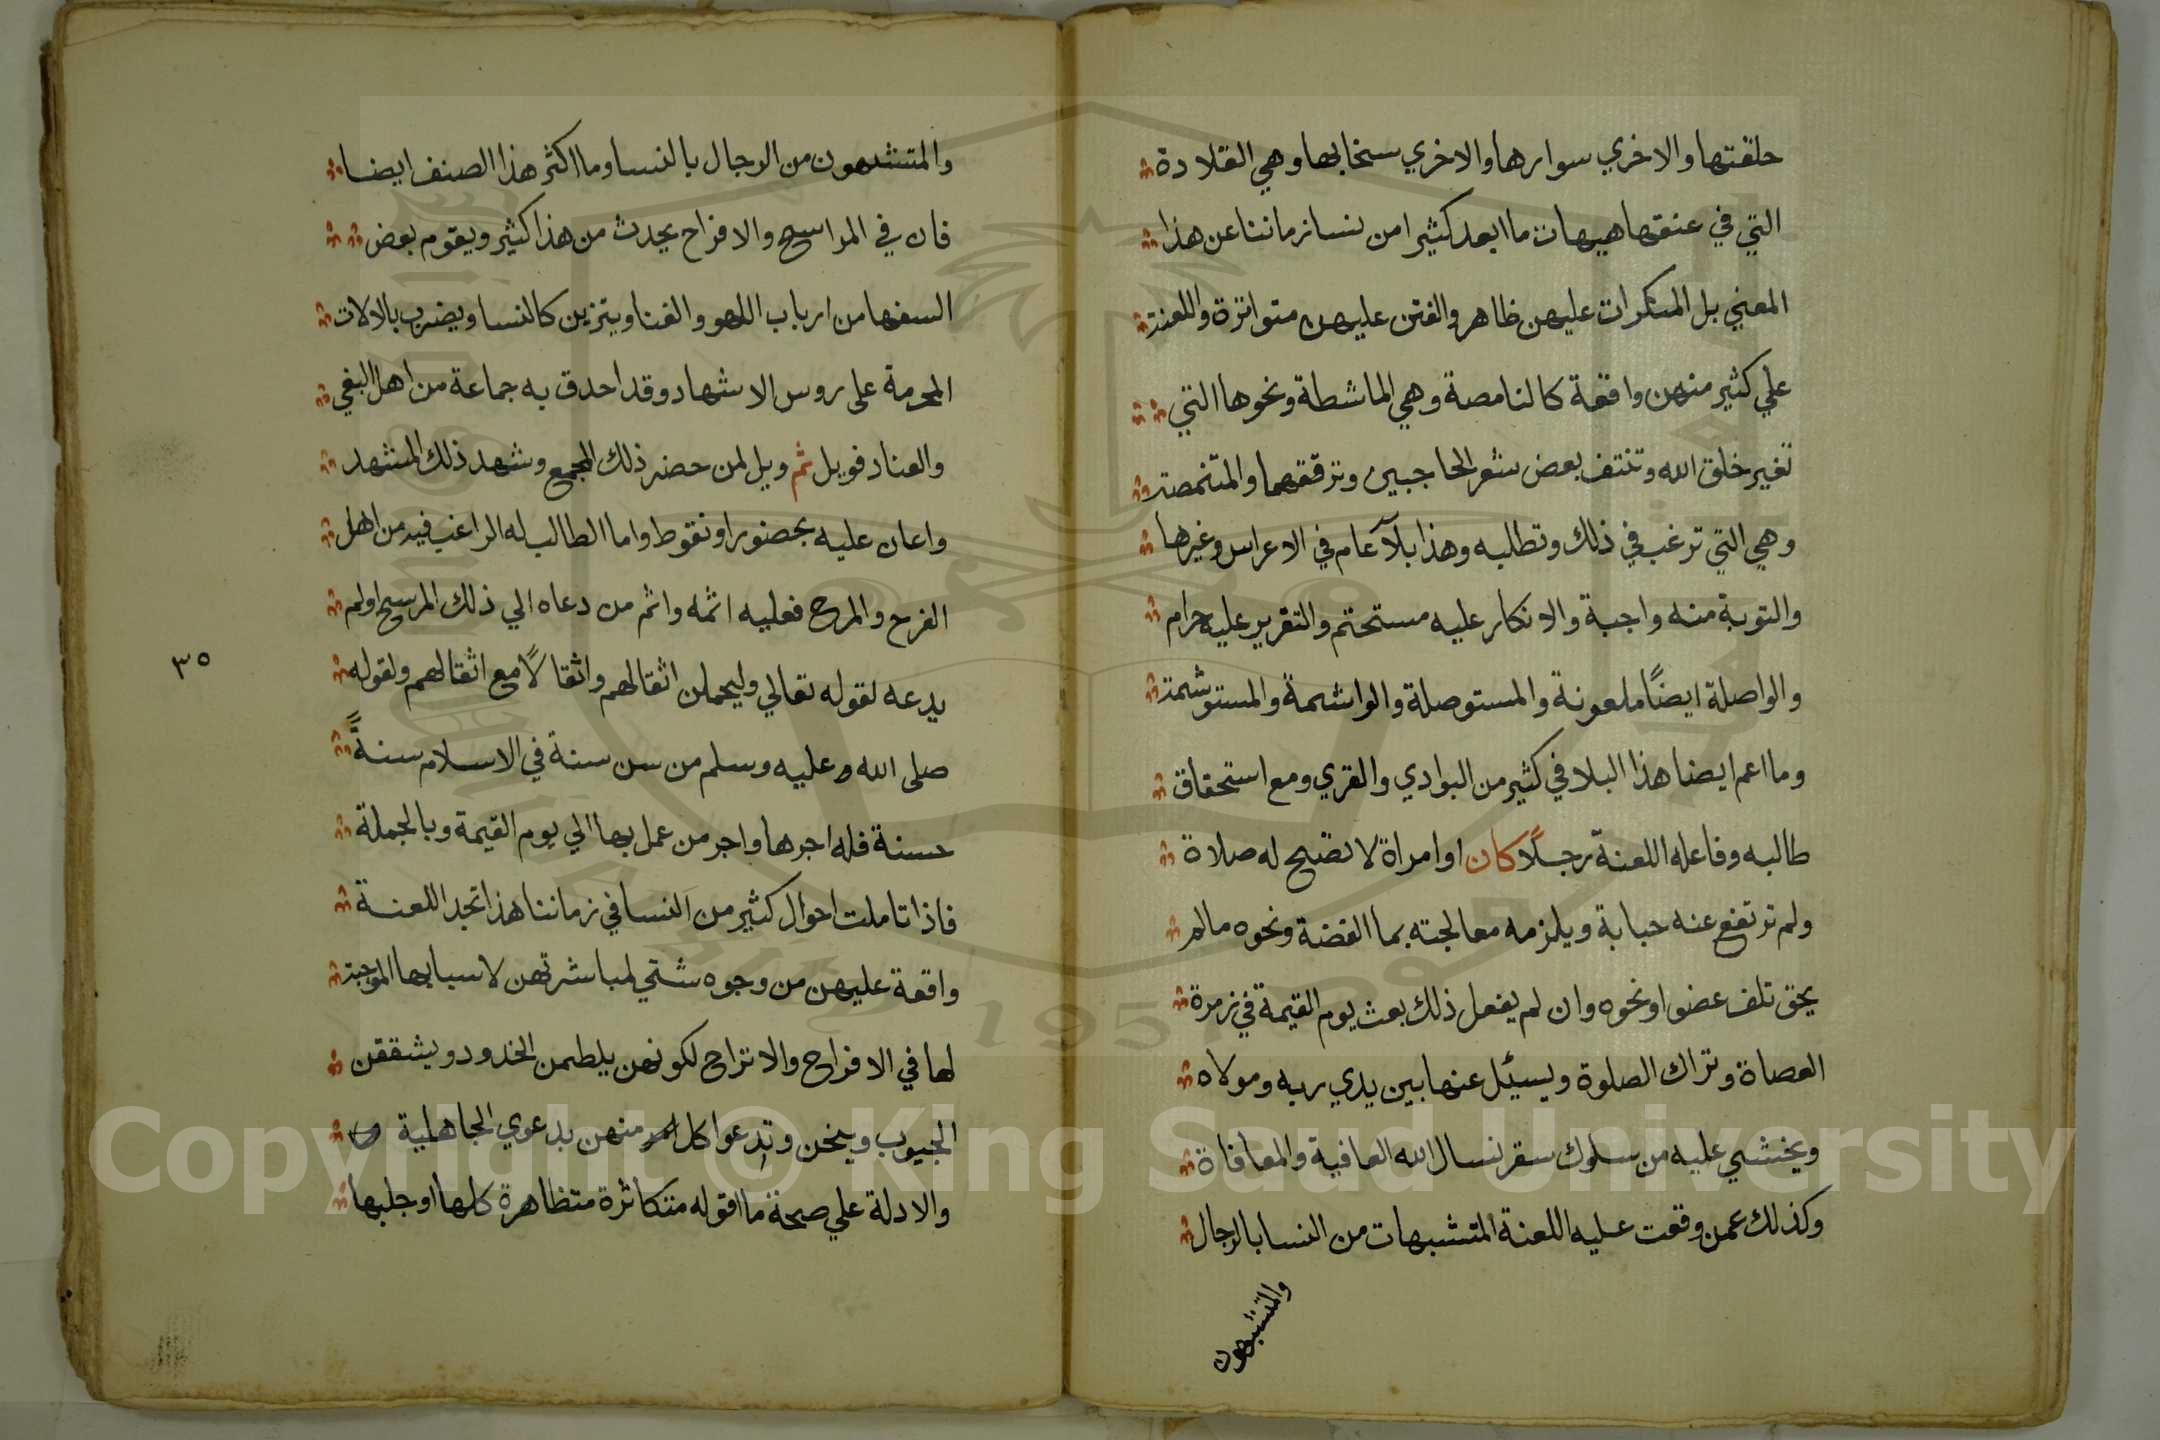 حلقتها والاخري سوارها والاخري سخابها وهي القلادة
التي في عنقها هيهات ما ابعد كثيرا من نسا زماننا عن هذا
المعني بل المنكرات عليهن ظاهر والفتن عليهن متواترة واللعنة
علي كثير منهن واقعة كالنامصة وهي الماشطة ونحوها التي
تغير خلق الله وتنتف بعض شعر الحاجبين وترققهما والمتنمصة
وهي التي ترغب في ذلك وتطلبه وهذا بلآ عام في الاعراس وغيرها
والتوبة منه واجبة والانكار عليه مستحتم والتقرير عليه حرام
والواصلة ايضًا ملعونة والمستوصلة والواشمة والمستوشمة
وما اعم ايضا هذا البلا في كثير من البوادي والقري ومع استحقاق
طالبه وفاعله اللعنة رجلًا كان او امراة لا تصح له صلاة
ولم ترتفع عنه جبابة ويلزمه معالجته بما الفضة ونحوه مالم
يحق تلف عضو او نحوه وان لم يفعل ذلك بعث يوم القيمة في زمرة
العصاة وتراك الصلوة ويسيئل عنها بين يدي ربه ومولاه
ويخشي عليه من سلوك سقر نسال الله العافية والمعافاة
وكذلك عمن وقعت عليه اللعنة المتشبهات من النسا بالرجال
والمتشبهون
والمتشبهون من الرجال بالنسا وما اكثر هذا الصنف ايضا
فان في المراسح والافراح يحدث من هذا كثير ويقوم بعض
السفها من ارباب اللهو والغنا ويتزين كالنسا ويضرب بالالات
المحرمة على روس الاشهاد وقد احدق به جماعة من اهل البغي
والعناد فويل ثم ويل لمن حضر ذلك المجمع وشهد ذلك المشهد
واعان عليه بحضور او نقوط واما الطالب له الراغب فيه من اهل
الفرح والمرح فعليه اثمه واثم من دعاه الي ذلك المرسح او لم
يدعه لقوله تعالي وليحملن اثقالهم واثقالًا مع اثقالهم ولقوله
٣٥
صلى الله عليه وسلم من سن سنة في الاسلام سنةً
حسنة فله اجرها واجر من عمل بها الي يوم القيمة وبالجملة
فاذا تاملت احوال كثير من النسا في زماننا هذا تجد اللعنة
واقعة عليهن من وجوه شتي لمباشرتهن لاسبابها الموجبة
لها في الافراح والاتراح لكونهن يلطمن الخدود ويشققن
الجيوب وينحن وتدعوا كل منهن بدعوي الجاهلية
والادلة علي صحة ما اقوله متكاثرة متظاهرة كلها او جلها
Copyright © King Saud University
1957